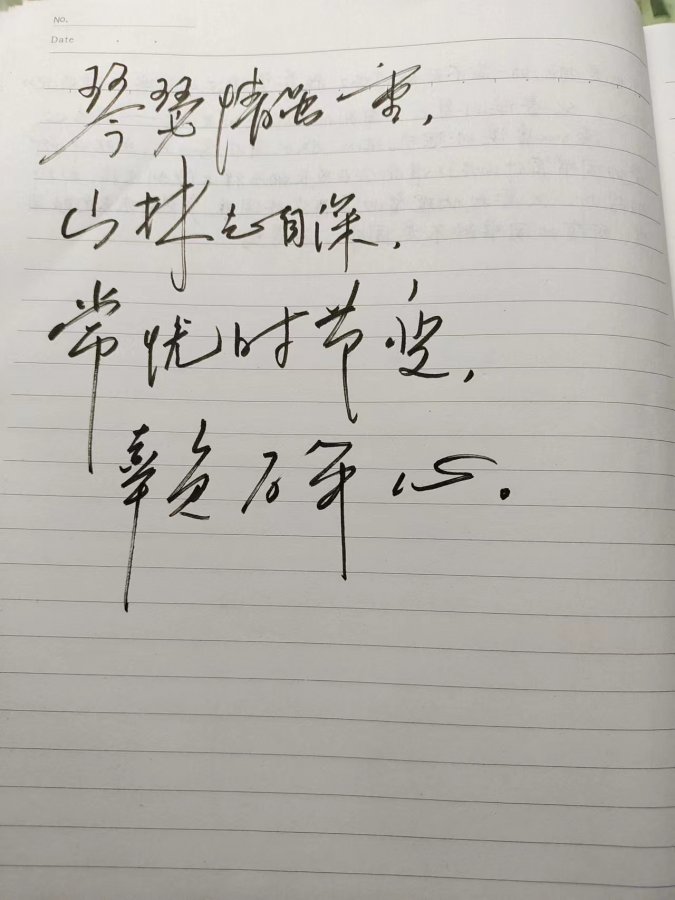 NO.
Date
琴瑟情虽重,
山林志自深.
常忧时节变,
辜负百年心。